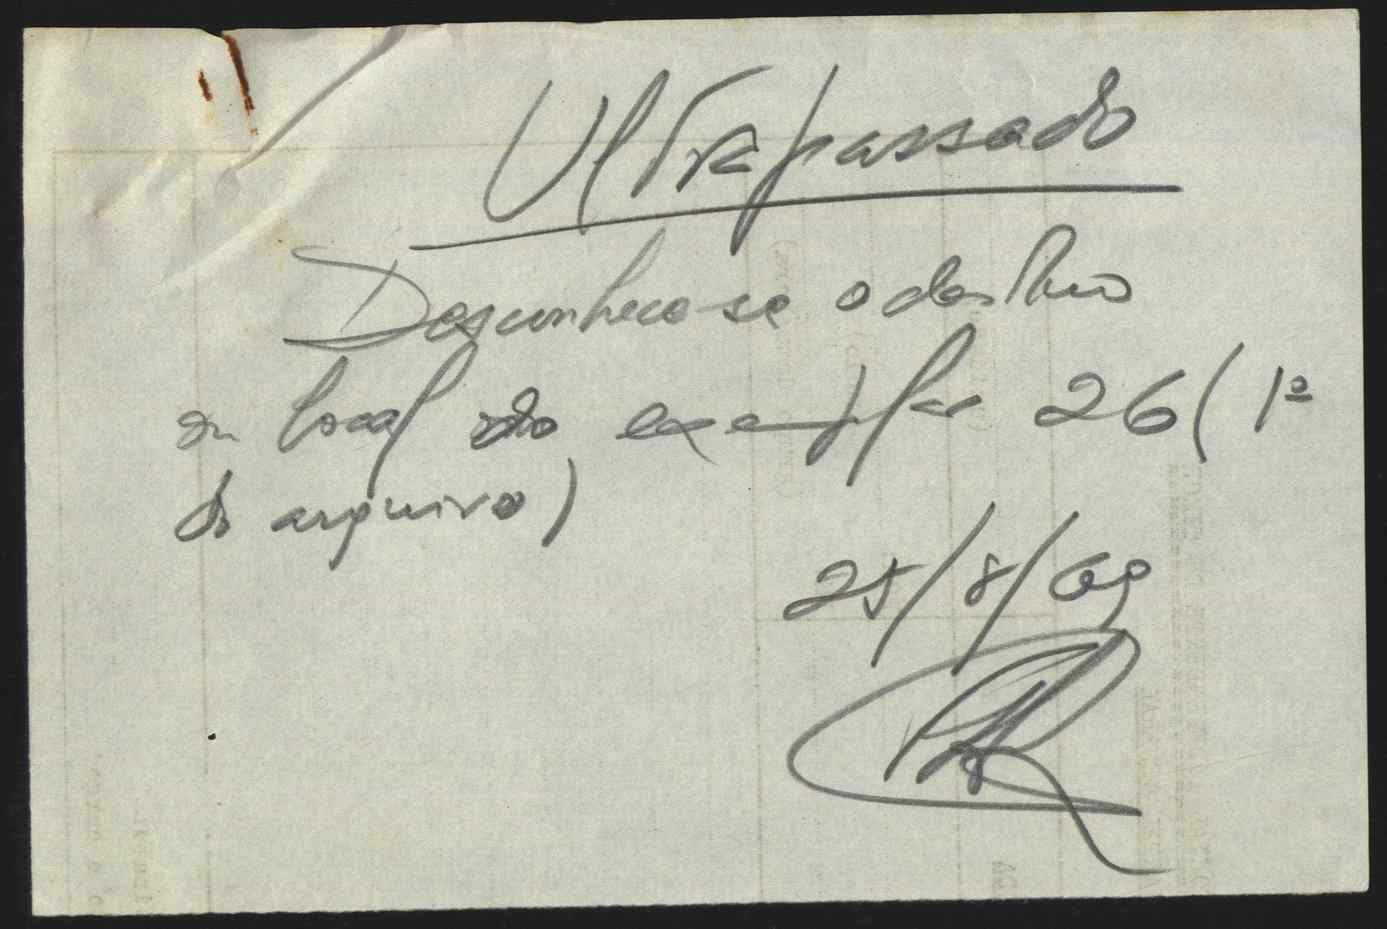 Ultrapassado
Desconhece-se o destino
ou local do exemplar 26 (1º
do arquivo)
25/8/69